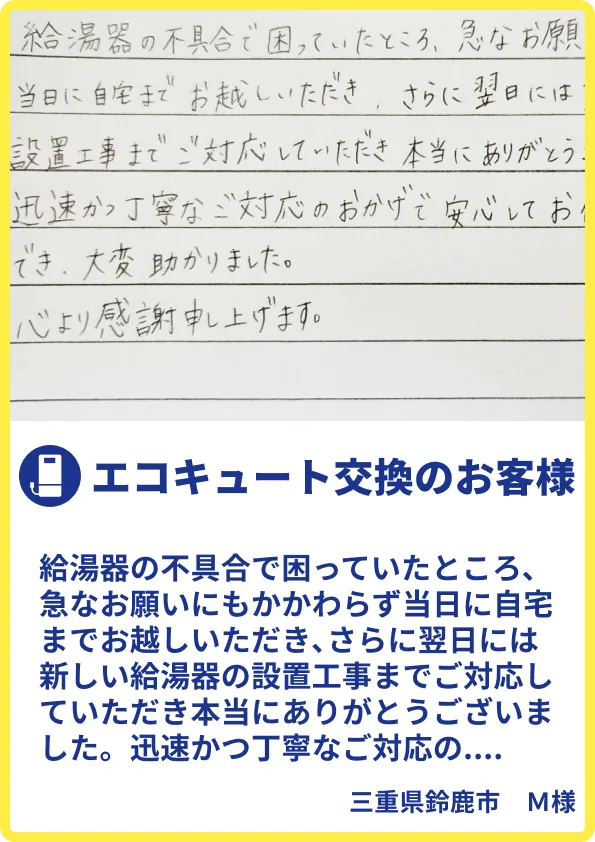 給湯器の不具合で困っていたところ、急なお願
当日に自宅まで お越しいただき、さらに翌日には
設置工事までご対応していただき 本当にありがとう
迅速かつ丁寧なご対応のおかげで 安心してお
でき、大変 助かりました。
心より感謝申し上げます。
エコキュート交換のお客様
給湯器の不具合で困っていたところ、
急なお願いにもかかわらず当日に自宅
までお越しいただき、さらに翌日には
新しい給湯器の設置工事までご対応し
ていただき本当にありがとうございま
した。迅速かつ丁寧なご対応の....
三重県鈴鹿市　M様